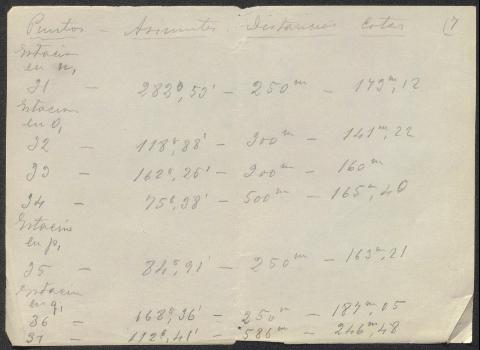 Puntos - Azimutes - Distancias Cotas (7
Estacion
en n,
31 - 282g,53' - 250m - 173m,12
Estacion
en O,
32 - 118g,88' - 300m - 141m,22
33 - 162g,25' - 200m - 160m
34 - 75g,38' - 500m - 165m,40
Estacion
en p,
35 - 84g,91' - 250m - 163m,21
Estacion
en q,
36 - 168g,36' - 250m - 187m,05
37 - 112g,41' - 586m - 246m,48